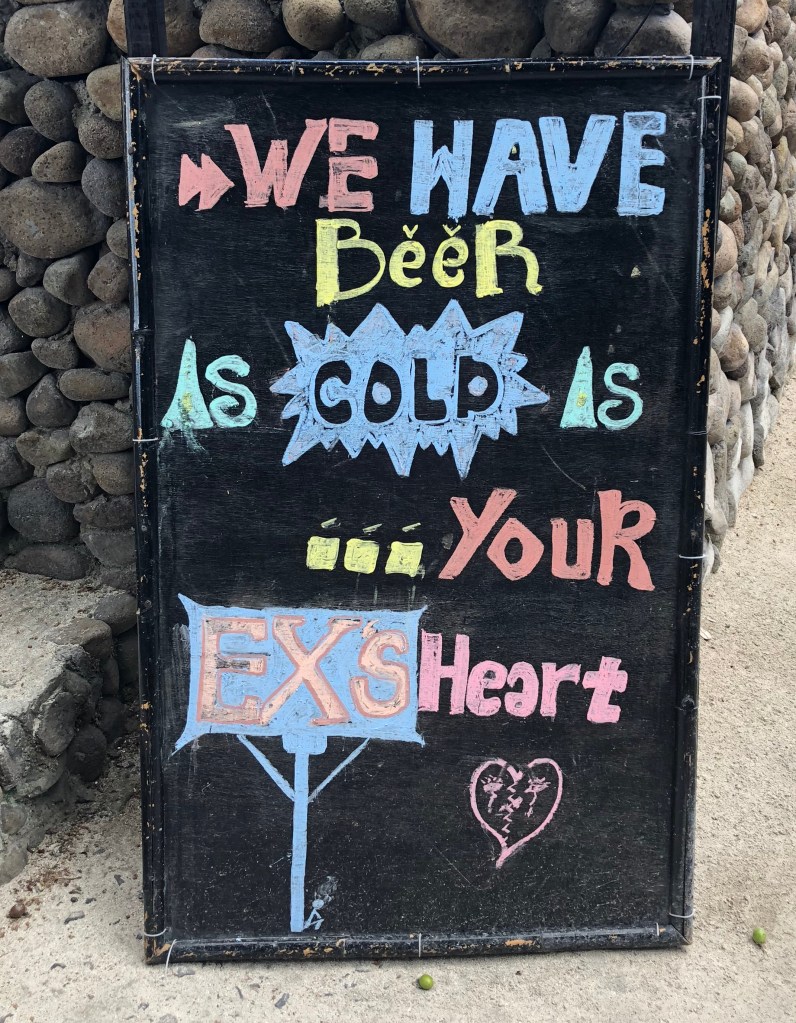 WE HAVE
BěěR
AS COLD AS
... YOUR
EX's Heart